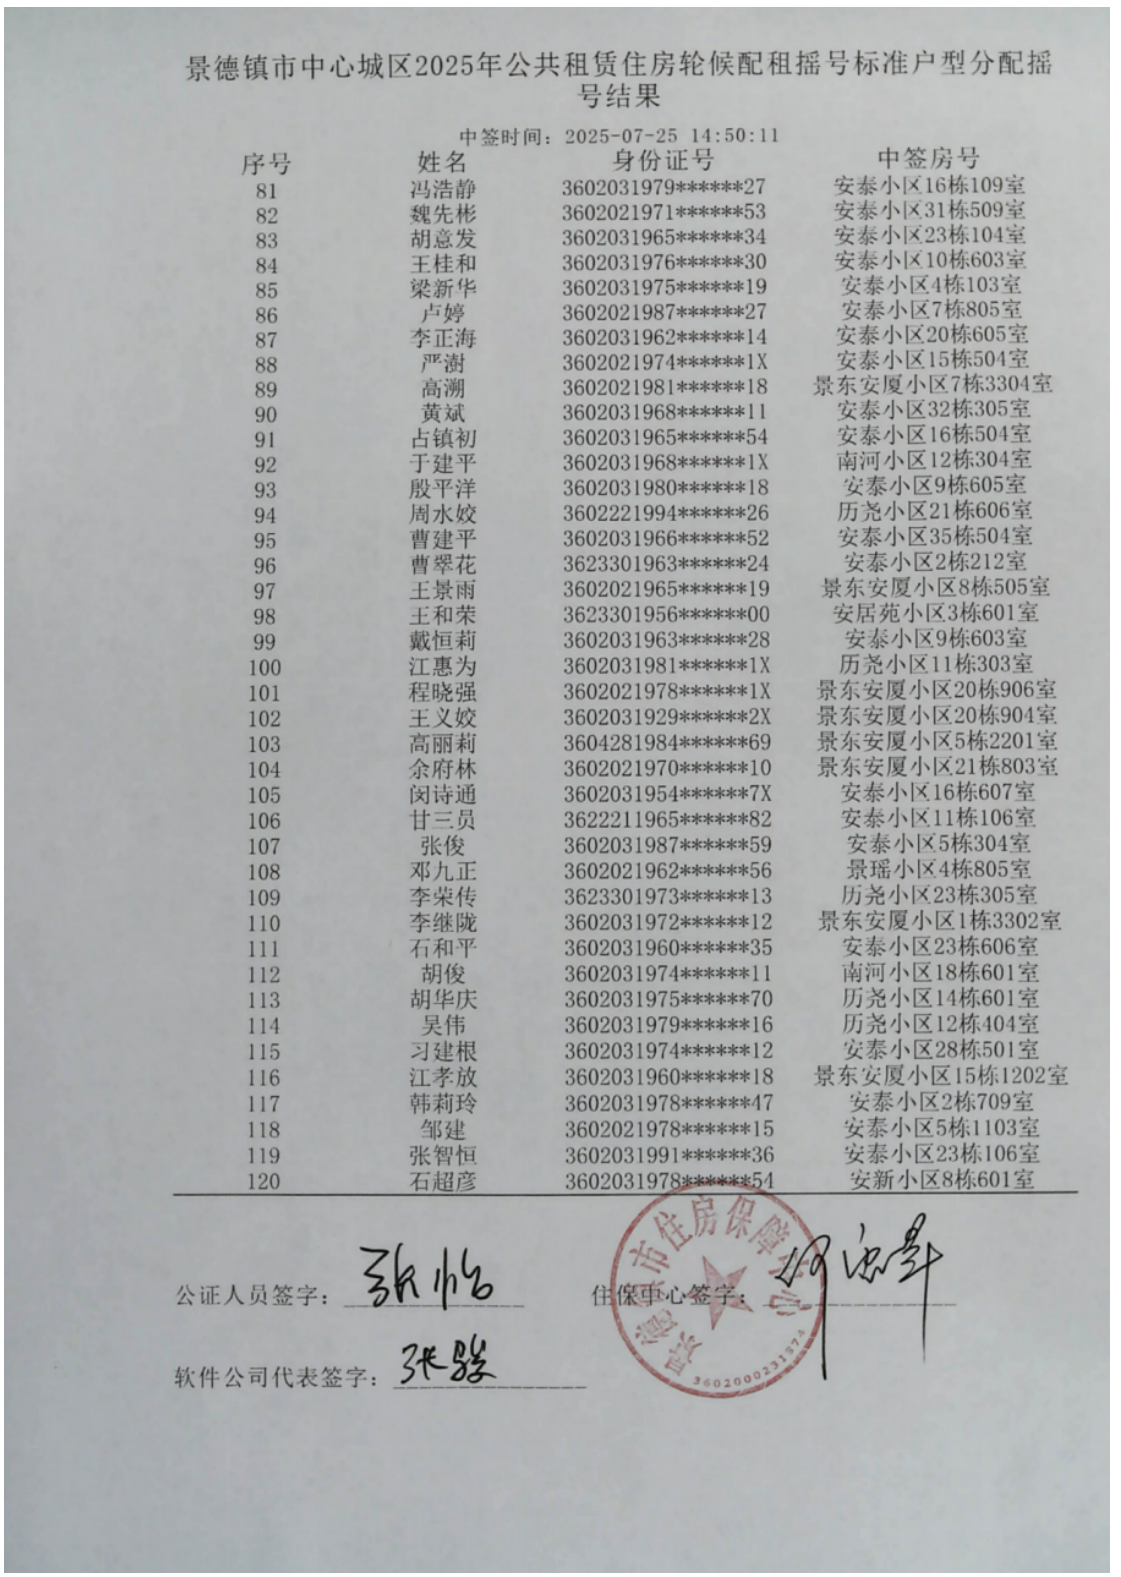 景德镇市中心城区2025年公共租赁住房轮候配租摇号标准户型分配摇
号结果
中签时间：2025-07-25 14:50:11
序号 姓名 身份证号 中签房号
81 冯浩静 3602031979******27 安泰小区16栋109室
82 魏先彬 3602021971******53 安泰小区31栋509室
83 胡意发 3602031965******34 安泰小区23栋104室
84 王桂和 3602031976******30 安泰小区10栋603室
85 梁新华 3602031975******19 安泰小区4栋103室
86 卢婷 3602021987******27 安泰小区7栋805室
87 李正海 3602031962******14 安泰小区20栋605室
88 严澍 3602021974******1X 安泰小区15栋504室
89 高溯 3602021981******18 景东安厦小区7栋3304室
90 黄斌 3602031968******11 安泰小区32栋305室
91 占镇初 3602031965******54 安泰小区16栋504室
92 于建平 3602031968******1X 南河小区12栋304室
93 殷平洋 3602031980******18 安泰小区9栋605室
94 周水姣 3602221994******26 历尧小区21栋606室
95 曹建平 3602031966******52 安泰小区35栋504室
96 曹翠花 3623301963******24 安泰小区2栋212室
97 王景雨 3602021965******19 景东安厦小区8栋505室
98 王和荣 3623301956******00 安居苑小区3栋601室
99 戴恒莉 3602031963******28 安泰小区9栋603室
100 江惠为 3602031981******1X 历尧小区11栋303室
101 程晓强 3602021978******1X 景东安厦小区20栋906室
102 王义姣 3602031929******2X 景东安厦小区20栋904室
103 高丽莉 3604281984******69 景东安厦小区5栋2201室
104 余府林 3602021970******10 景东安厦小区21栋803室
105 闵诗通 3602031954******7X 安泰小区16栋607室
106 甘三员 3622211965******82 安泰小区11栋106室
107 张俊 3602031987******59 安泰小区5栋304室
108 邓九正 3602021962******56 景瑶小区4栋805室
109 李荣传 3623301973******13 历尧小区23栋305室
110 李继陇 3602031972******12 景东安厦小区1栋3302室
111 石和平 3602031960******35 安泰小区23栋606室
112 胡俊 3602031974******11 南河小区18栋601室
113 胡华庆 3602031975******70 历尧小区14栋601室
114 吴伟 3602031979******16 历尧小区12栋404室
115 习建根 3602031974******12 安泰小区28栋501室
116 江孝放 3602031960******18 景东安厦小区15栋1202室
117 韩莉玲 3602031978******47 安泰小区2栋709室
118 邹建 3602021978******15 安泰小区5栋1103室
119 张智恒 3602031991******36 安泰小区23栋106室
120 石超彦 3602031978******54 安新小区8栋601室
景德镇市住房保障中心
公证人员签字：张怡 住保中心签字：
软件公司代表签字：张骏
3602000231574